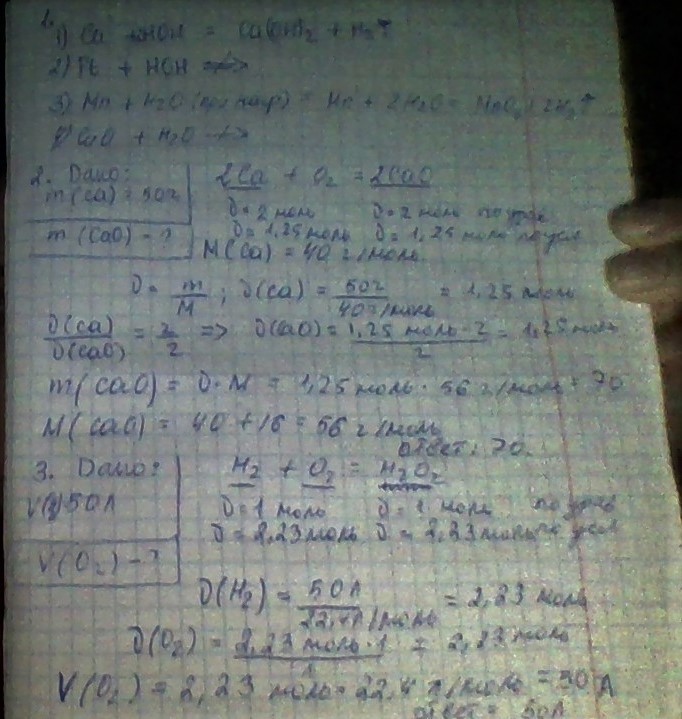 1.
1) Ca + HOH = Ca(OH)2 + H2↑
2) Pb + HOH
3) Mn + H2O (при нагр) = Mn + 2H2O = MnO2 + 2H2↑
+ H2O
2. Дано:
m(Ca) = 50г
m(CaO) - ?
2Ca + O2 = 2CaO
υ = 2 моль υ = 2 моль по
υ = 1,25 моль υ = 1,25 моль по усл
M(Ca) = 40 г/моль
υ = m/M ; υ(Ca) = 50г/40г/моль = 1,25 моль
υ(Ca)/υ(CaO) = 2/2 => υ(CaO) = 1,25 моль · 2/2 = 1,25 моль
m(CaO) = υ · M = 1,25 моль · 56 г/моль = 70
M(CaO) = 40 + 16 = 56 г/моль
ответ: 70.
3. Дано:
50л
V(O2) - ?
H2 + O2 = H2O2
υ = 1 моль υ = моль по
υ = 2,23 моль υ = 2,23 моль по усл
υ(H2) = 50л/22,4л/моль = 2,23 моль
υ(O2) = 2,23 моль · 1/1 = 2,23 моль
V(O2) = 2,23 моль · 22,4 л/моль = 50 л
ответ = 50л